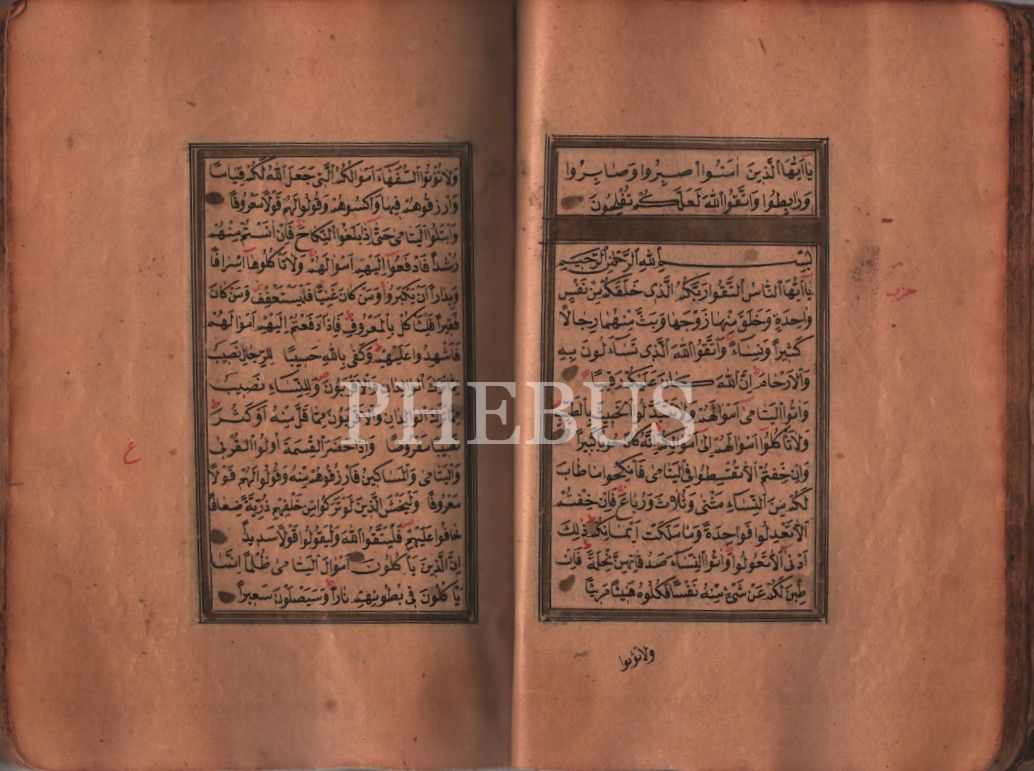 يا ايها الذين امنوا اصبروا وصابروا
ورابطوا واتقوا الله لعلكم تفلحون
بسم الله الرحمن الرحيم
يا ايها الناس اتقوا ربكم الذي خلقكم من نفس
واحدة وخلق منها زوجها وبث منهما رجالا
كثيرا ونساء واتقوا الله الذي تساءلون به
والارحام ان الله كان عليكم رقيبا
واتوا اليتامى اموالهم ولا تتبدلوا الخبيث بالطيب
ولا تاكلوا اموالهم الى اموالكم انه كان حوبا كبيرا
وان خفتم الا تقسطوا في اليتامى فانكحوا ما طاب
لكم من النساء مثنى وثلاث ورباع فان خفتم
الا تعدلوا فواحدة وما ملكت ايمانكم ذلك
ادنى الا تعولوا واتوا النساء صدقاتهن نحلة فان
طبن لكم عن شئ منه نفسا فكلوه هنيئا مريئا
ولا تؤتوا
حزب
ولا تؤتوا السفهاء اموالكم التي جعل الله لكم قياما
وارزقوهم فيها واكسوهم وقولوا لهم قولا معروفا
وابتلوا اليتامى حتى اذا بلغوا النكاح فان انستم منهم
رشدا فادفعوا اليهم اموالهم ولا تاكلوها اسرافا
وبدارا ان يكبروا ومن كان غنيا فليستعفف ومن كان
فقيرا فلياكل بالمعروف فاذا دفعتم اليهم اموالهم
فاشهدوا عليهم وكفى بالله حسيبا للرجال نصيب
مما ترك الوالدان والاقربون وللنساء نصيب
مما ترك الوالدان والاقربون مما قل منه او كثر
نصيبا مفروضا واذا حضر القسمة اولوا القربى
واليتامى والمساكين فارزقوهم منه وقولوا لهم قولا
معروفا وليخش الذين لو تركوا من خلفهم ذرية ضعافا
خافوا عليهم فليتقوا الله وليقولوا قولا سديدا
ان الذين ياكلون اموال اليتامى ظلما انما
ياكلون في بطونهم نارا وسيصلون سعيرا
ع
PHEBUS